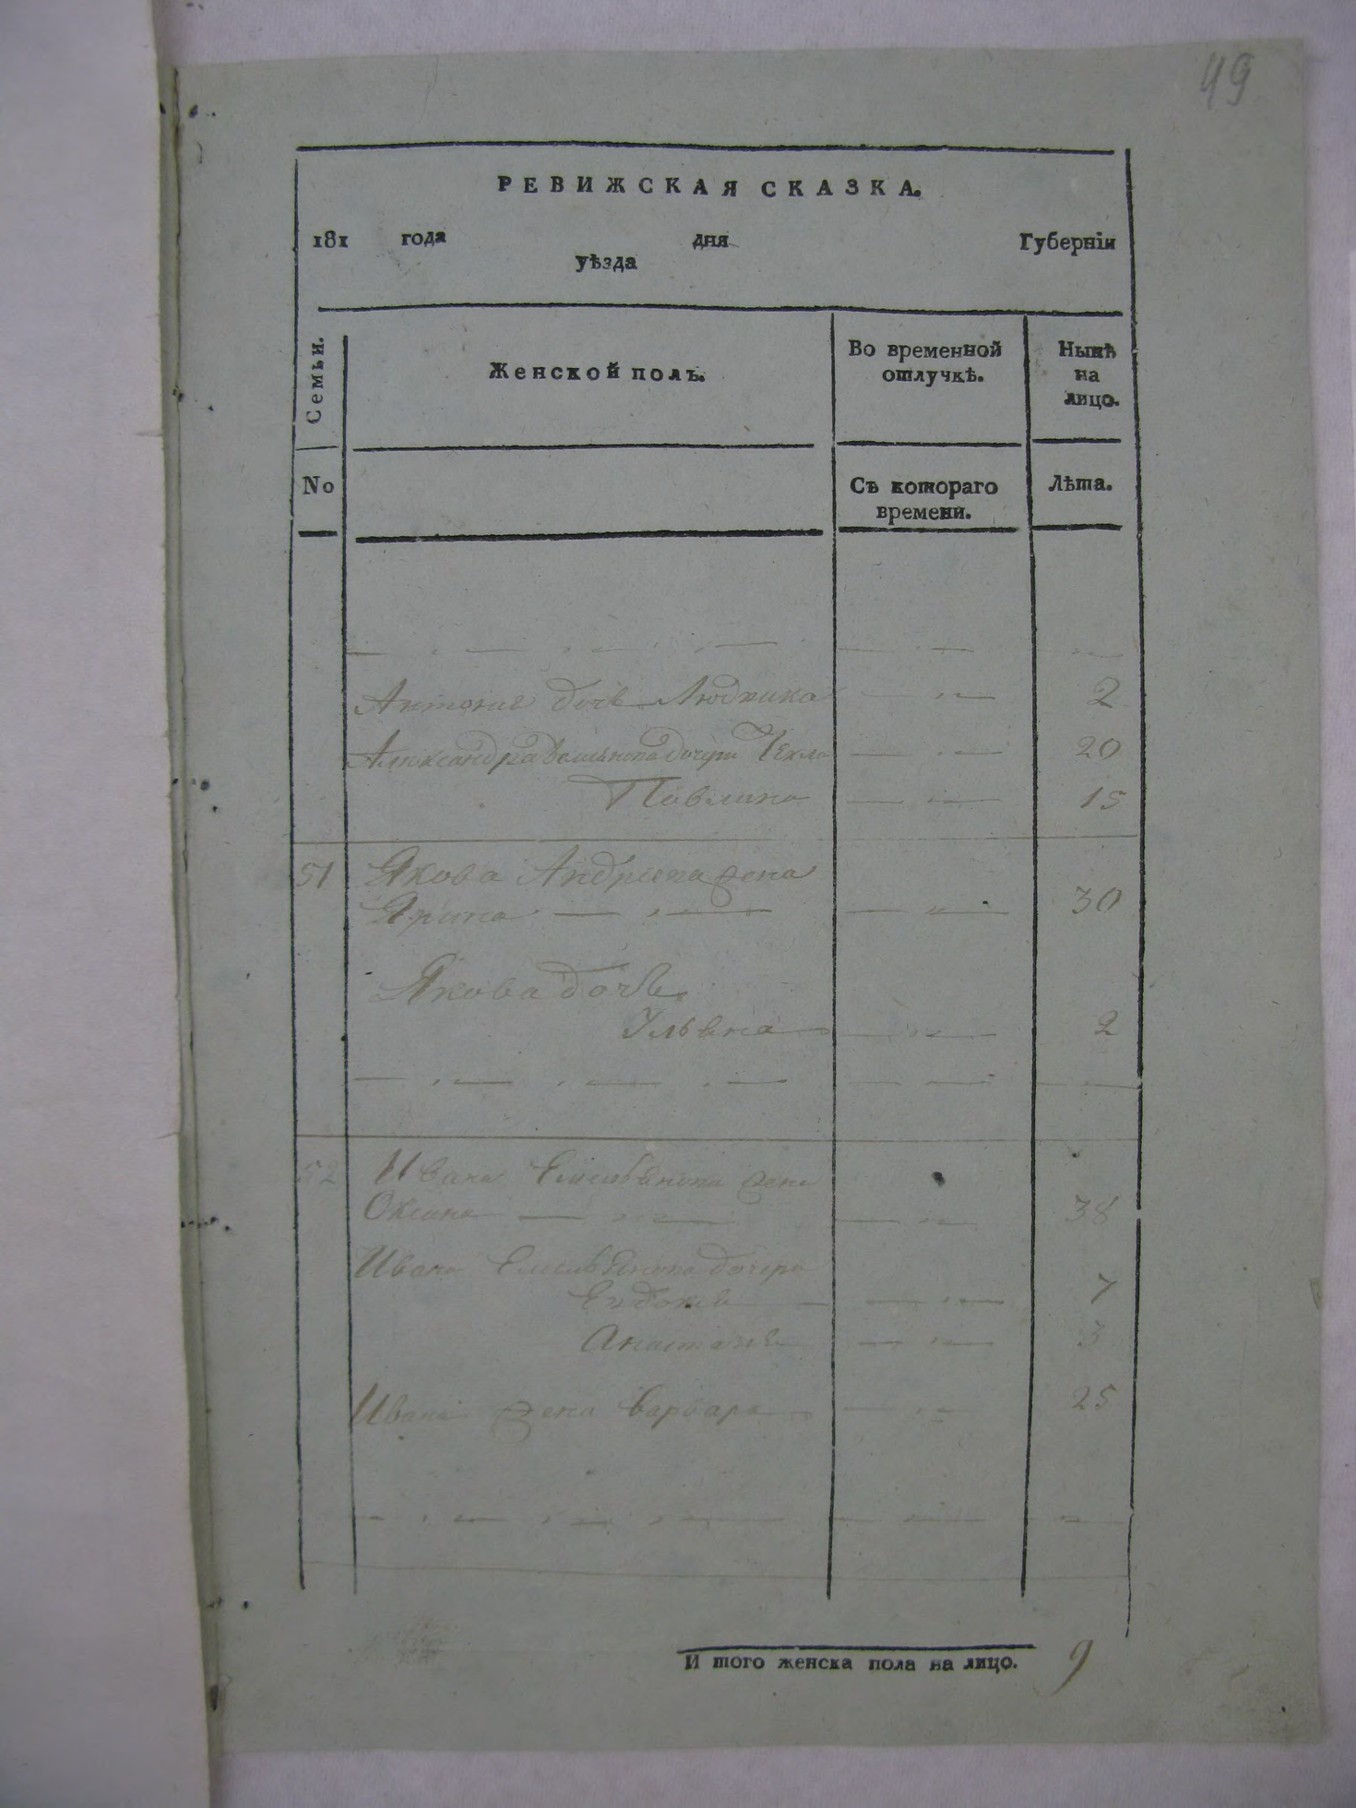 49
РЕВИЖСКАЯ СКАЗКА.
181 года дня Губерніи
уѣзда
Семьи. Женской полъ. Во временной отлучкѣ. Нынѣ на лицо.
No Съ котораго времени. Лѣта.
Антонія дочь Людвика 2
Александра дочери Текла 20
Павлина 15
51 Якова Андреева жена
Ярина 30
Якова дочь
2
52 Ивана Емельянова жена
Оксана 38
Ивана Емельянова дочери
Евдокія 7
Анастасія 3
Ивана жена Варвара 25
И того женска пола на лицо. 9